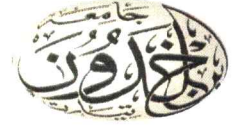 جامعة
ابن خلدُون
تيارت